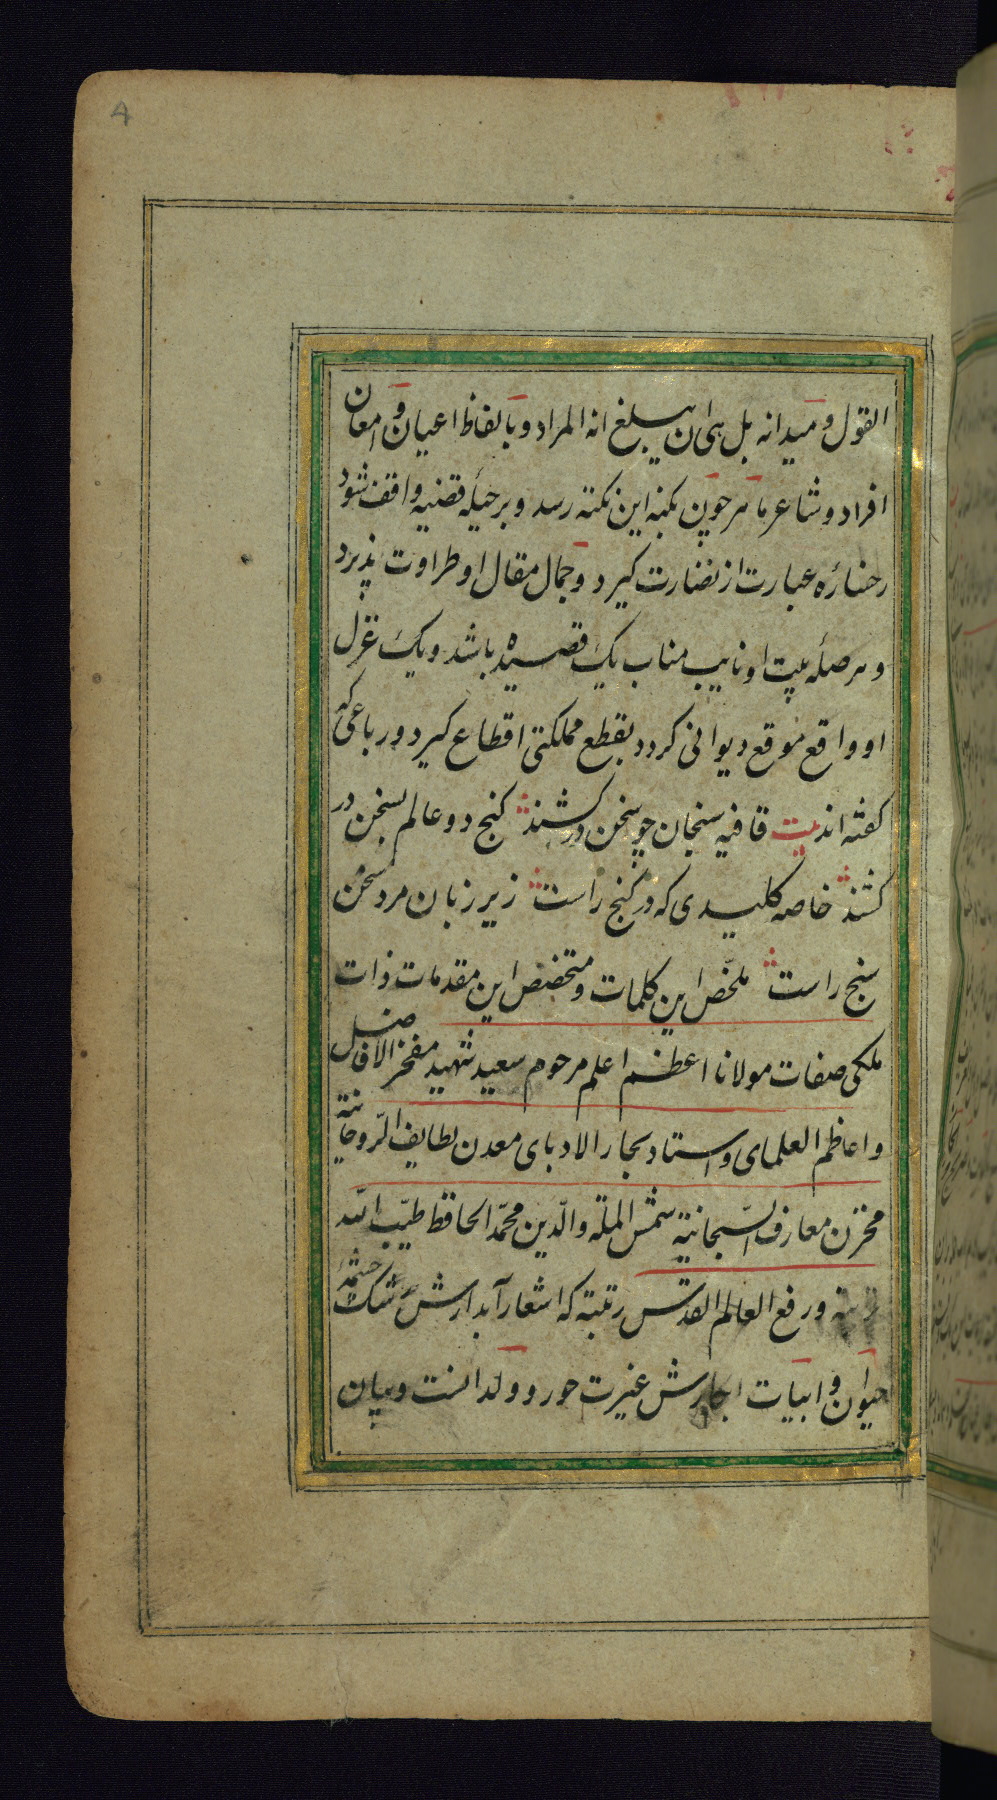 4
القول و میدانه بل هی ان یبلغ انه المراد و بالفاظ اعیان و امعان
افراد و شاعر ماهر چون بکنه این نکته رسد و بر حیله قضیه واقف شود
رخساره عبارت از نضارت کیرد و جمال مقال او طراوت پذیرد
و سر صله بیت او نایب مناب یک قصیده باشد و یک غزل
او واقع موقع دیوانی کردد بقطع مملکتی اقطاع کیرد و رباعی که
کفته اند بیت قافیه سنجان چو سخن در کشند کنج دو عالم بسخن در
کشند خاصه کلیدی که در کنج راست زیر زبان مرد سخن
سنج راست ملخّص این کلمات و متخصّص این مقدمات ذات
ملکی صفات مولانا اعظم اعلم مرحوم سعید شهید مفخر الافاضل
و اعاظم العلمای و استاد نحار الادبای معدن لطایف الرّوحانیة
مخزن معارف السّبحانیّة شمس الملّة والدّین محمّد الحافظ طیّب الله
تربته و رفع العالم القدس رتبته که اشعار آبدارش رشک چشمهٔ
حیوان و ابیات ابکارش غیرت حور و ولدانست و بیان